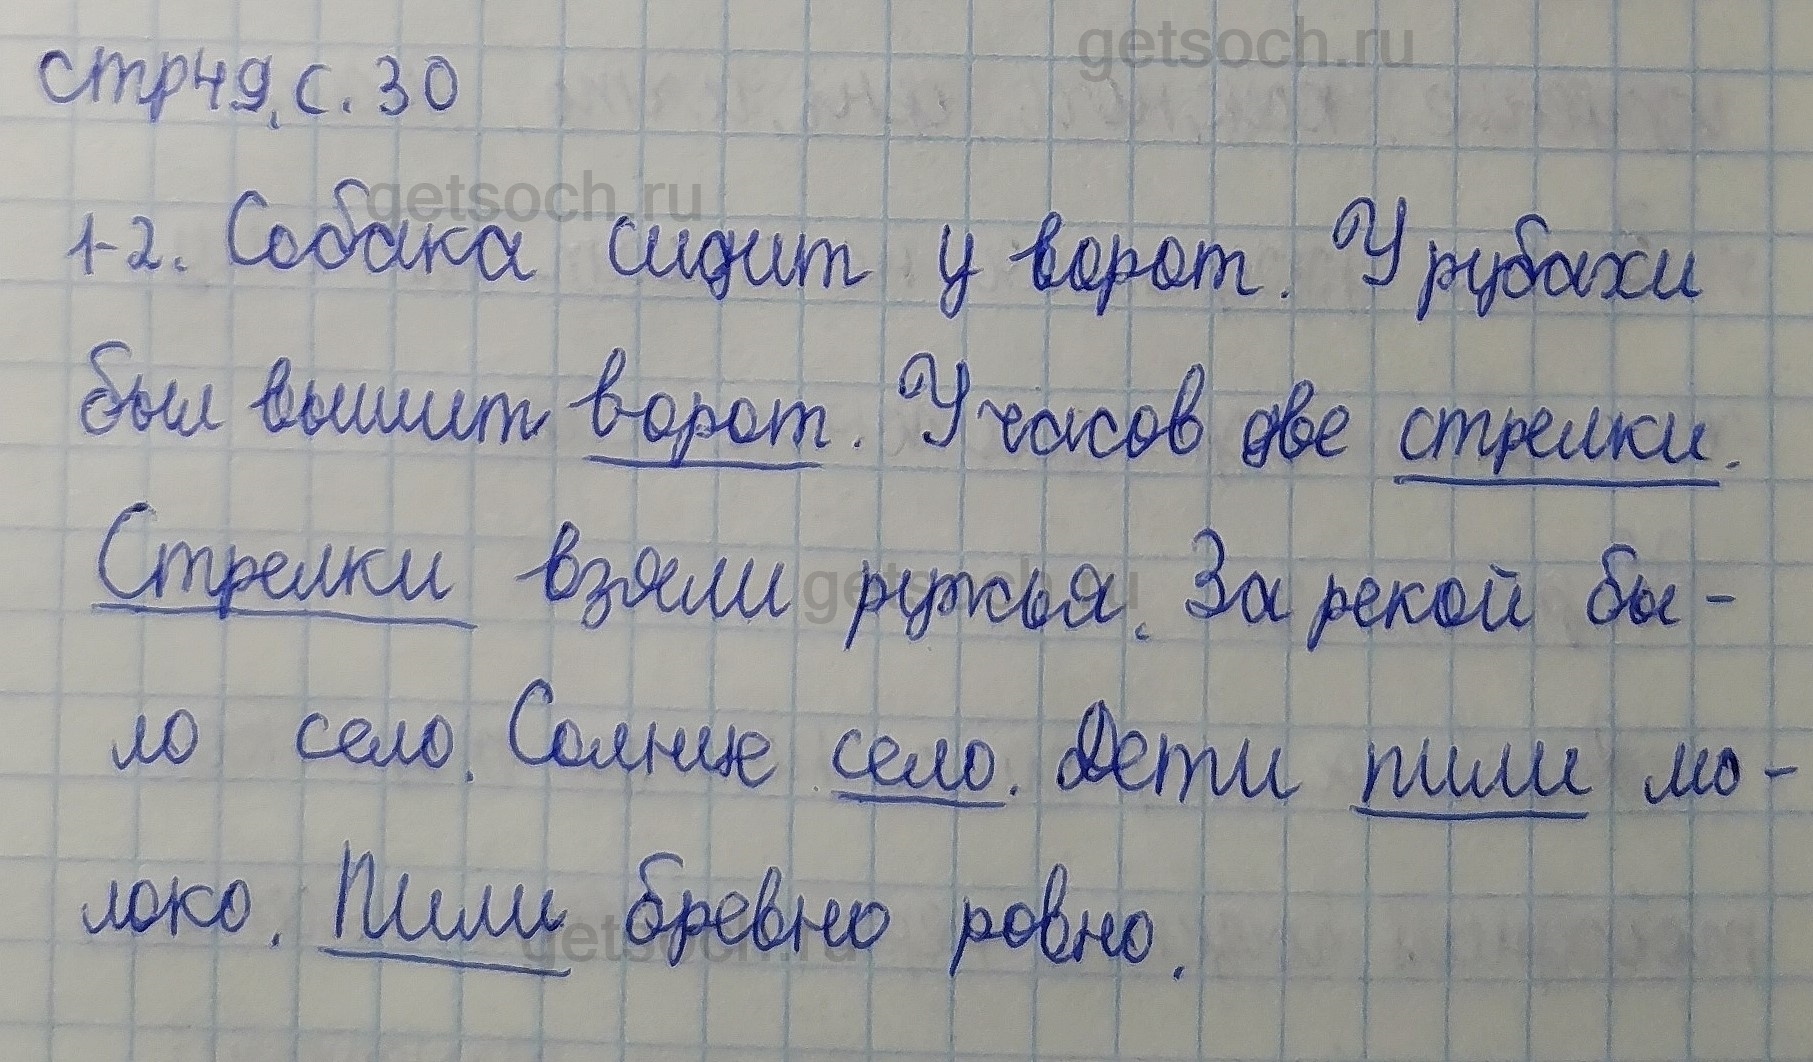 getsoch.ru
стр49, с. 30
getsoch.ru
1-2. Собака сидит у ворот. У рубахи
был вышит ворот. У часов две стрелки.
Стрелки взяли ружья. За рекой бы-
getsoch.ru
ло село. Солнце село. Дети пили мо-
локо. Пили бревно ровно.
getsoch.ru